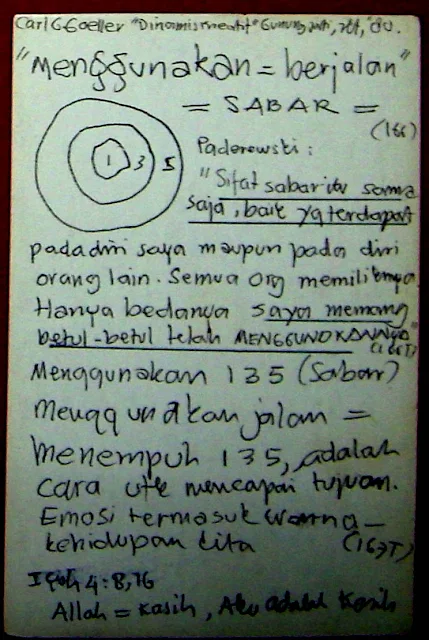 Carl G Goeller "Dinamis Kreatif" Gunung Jati, Jkt, '80.
"Menggunakan = berjalan"
= SABAR =
(166)
1 3 5
Paderewski :
"Sifat sabar itu sama
saja, baik yg terdapat
pada diri saya maupun pada diri
orang lain. Semua org memilikinya
Hanya bedanya saya memang
betul-betul telah MENGGUNAKANNYA"
(166T)
Menggunakan 135 (Sabar)
Menggunakan jalan =
Menempuh 135, adalah
cara utk mencapai tujuan.
Emosi termasuk warna-
kehidupan kita (167T)
I Yoh 4:8,16
Allah = Kasih, Aku adalah Kasih